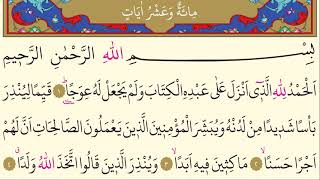 مِائَةٌ وَعَشْرُ اٰيَاتٍ
بِسْمِ اللّٰهِ الرَّحْمٰنِ الرَّحٖيمِ
اَلْحَمْدُ لِلّٰهِ الَّذٖٓي اَنْزَلَ عَلٰى عَبْدِهِ الْكِتَابَ وَلَمْ يَجْعَلْ لَهُ عِوَجًا ﴿١﴾ قَيِّمًا لِيُنْذِرَ
بَأْسًا شَدٖيدًا مِنْ لَدُنْهُ وَيُبَشِّرَ الْمُؤْمِنٖينَ الَّذٖينَ يَعْمَلُونَ الصَّالِحَاتِ اَنَّ لَهُمْ
اَجْرًا حَسَنًا ﴿٢﴾ مَاكِثٖينَ فٖيهِ اَبَدًا ﴿٣﴾ وَيُنْذِرَ الَّذٖينَ قَالُوا اتَّخَذَ اللّٰهُ وَلَدًا ﴿٤﴾